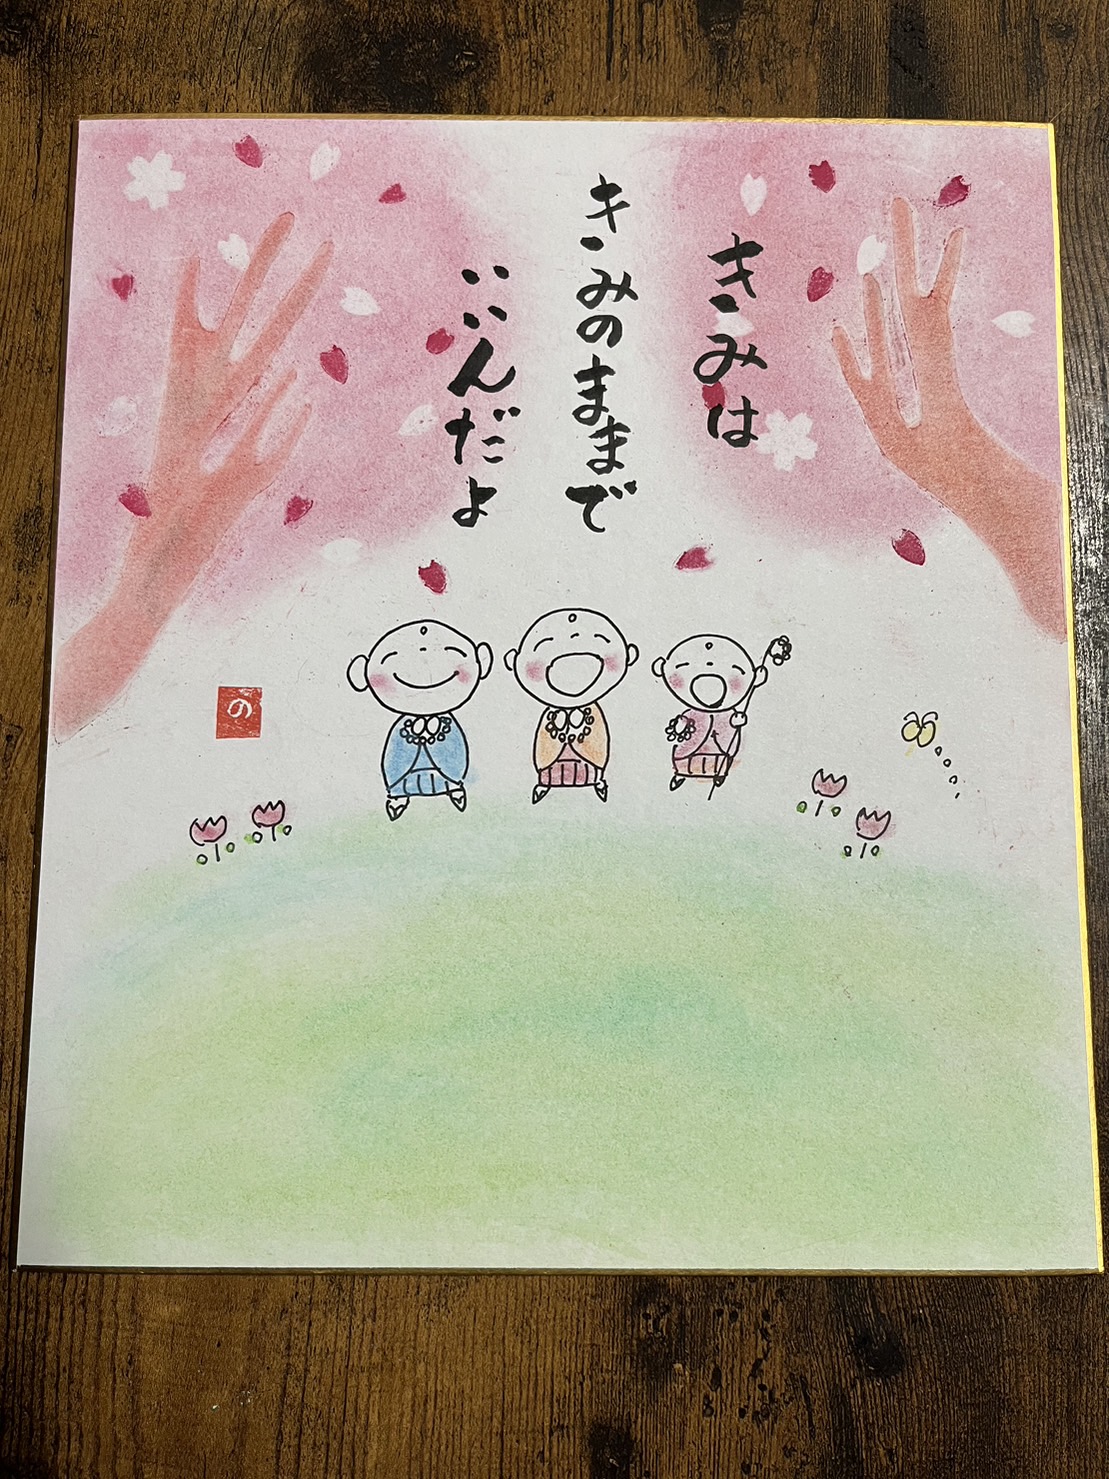 きみは
きみのままで
いいんだよ
の